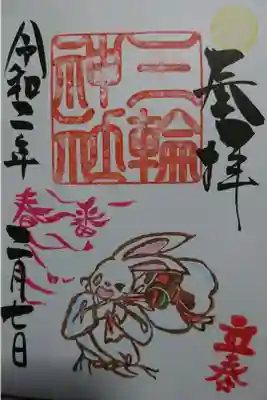 奉拝
立春
三輪
神社
春一番
令和二年
二月七日